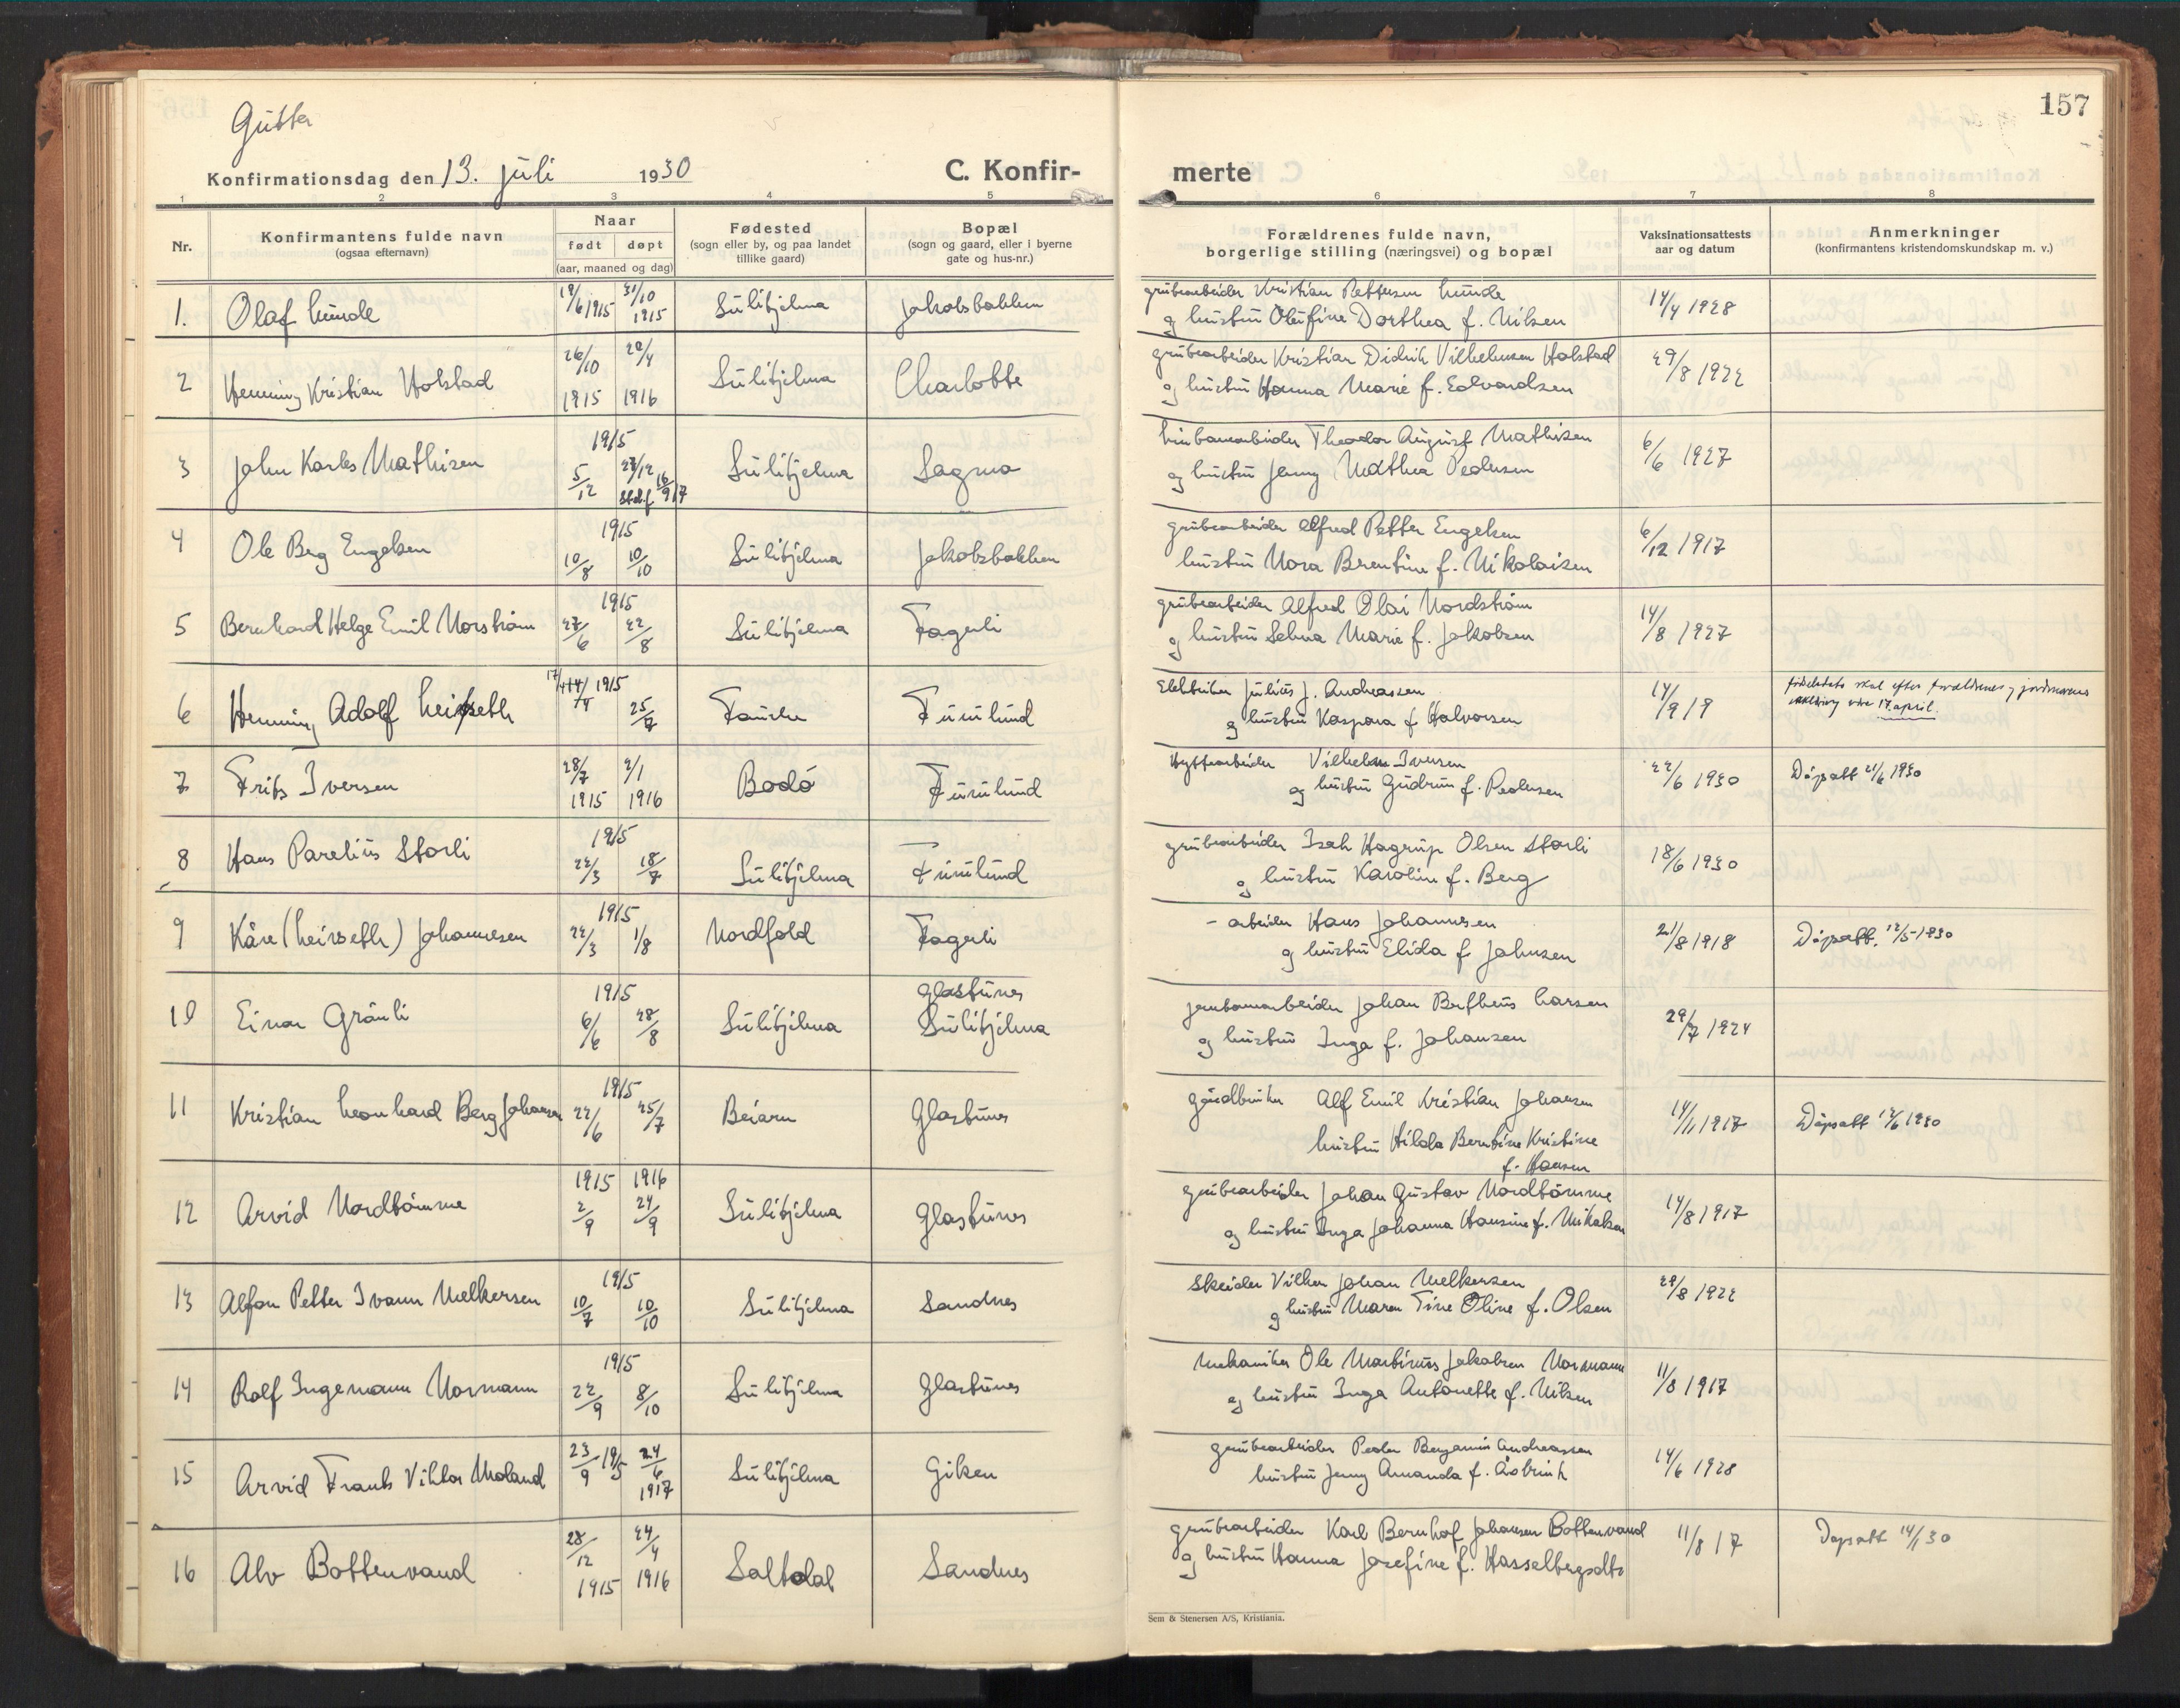 157
Gutter
Konfirmationsdag den 13. juli 1930
C. Konfir-
merte
1 2 3 4 5 6 7 8
Nr.
Konfirmantens fulde navn
(ogsaa efternavn)
Naar
født døpt
(aar, maaned og dag)
Fødested
(sogn eller by, og paa landet
tillike gaard)
Bopæl
(sogn og gaard, eller i byerne
gate og hus-nr.)
Forældrenes fulde navn,
borgerlige stilling (næringsvei) og bopæl
Vaksinationsattests
aar og datum
Anmerkninger
(konfirmantens kristendomskundskap m. v.)
1. Olaf Lunde 19/6 1915 31/10 1915 Sulitjelma Jakobsbakken
grubearbeider Kristian Pettersen Lunde
og hustru Olufine Dorthea f. Nilsen 14/4 1928
2 Henning Kristian Holstad 26/10 1915 20/4 1916 Sulitjelma Charlotte
grubearbeider Kristian Didrik Vilhelmsen Holstad
og hustru Hanna Marie f. Edvardsen 29/8 1922
3 John Karles Mathisen 1915 5/12 27/12 Sulitjelma Sagmo
linbanearbeider Theodor August Mathisen
og hustru Jenny Mathea Pedersen 6/6 1927
4 Ole Berg Engelsen 1915 10/8 10/10 Sulitjelma Jakobsbakken
grubearbeider Alfred Petter Engelsen
hustru Nora Brentine f. Nikolaisen 6/12 1917
5 Bernhard Helge Emil Norstrøm 1915 27/6 22/8 Sulitjelma Fagerli
grubearbeider Alfred Olai Nordstrøm
og hustru Selma Marie f. Jakobsen 14/8 1927
6 Henning Adolf Leirseth 17/4 1915 25/7 Fauske Furulund
Elektriker Julius J. Andreassen
og hustru Kaspara f Halvorsen 14/9 19
fødselsdato skal efter foreldrenes og jordmorens
erklæring være 17. april.
7 Frits Iversen 28/7 1915 2/1 1916 Bodø Furulund
Hyttearbeider Vilhelm Iversen
og hustru Gudrun f. Pedersen 22/6 1930 Dåpsatt 21/6 1930
8 Hans Parelius Storli 1915 22/3 18/7 Sulitjelma Furulund
grubearbeider Isak Hagrup Olsen Storli
og hustru Karoline f. Berg 18/6 1930
9 Kåre (Leirseth) Johannesen 1915 22/3 1/8 Nordfold Fagerli
- arbeider Hans Johannesen
og hustru Elida f Johnsen 21/8 1918 Dåpsatt. 12/5 1930
10 Einar Grønli 1915 6/6 28/8 Sulitjelma Glastunes
Sulitjelma
jernbanearbeider Johan Bertheus Larsen
og hustru Inga f. Johansen 29/7 1924
11 Kristian Leonhard Berg Johansen 1915 22/6 25/7 Beiarn Glastunes
gårdbruker Alf Emil Kristian Johansen
hustru Hilda Berntine Kristine
f. Hansen 14/11 1917 Dåpsatt 12/6 1930
12 Arvid Nordtømme 1915 2/9 1916 24/9 Sulitjelma Glastunes
grubearbeider Johan Gustav Nordtømme
og hustru Inga Johanna Hansine f. Nikolaisen 14/8 1917
13 Alfon Petter Ivann Melkersen 1915 10/7 10/10 Sulitjelma Sandnes
Skeider Vilhen Johan Melkersen
og hustru Maren Tine Oline f. Olsen 29/8 1922
14 Rolf Ingemann Normann 1915 22/9 8/10 Sulitjelma Glastunes
Mekaniker Ole Martinus Jakobsen Normann
og hustru Inga Antonette f. Nilsen 11/8 1917
15 Arvid Frants Viktor Moland 23/9 1915 24/6 1917 Sulitjelma Giken
grubearbeider Peder Benjamin Andreassen
hustru Jenny Amanda f. Åsbrink 14/6 1928
16 Alv Bottenvand 28/12 1915 24/4 1916 Saltdal Sandnes
grubearbeider Karl Bernhof Johansen Bottenvand
og hustru Hanna Josefine f. Hasselbergsdtr 11/8 17 Dåpsatt 14/1 30
Sem & Stenersen A/S, Kristiania.